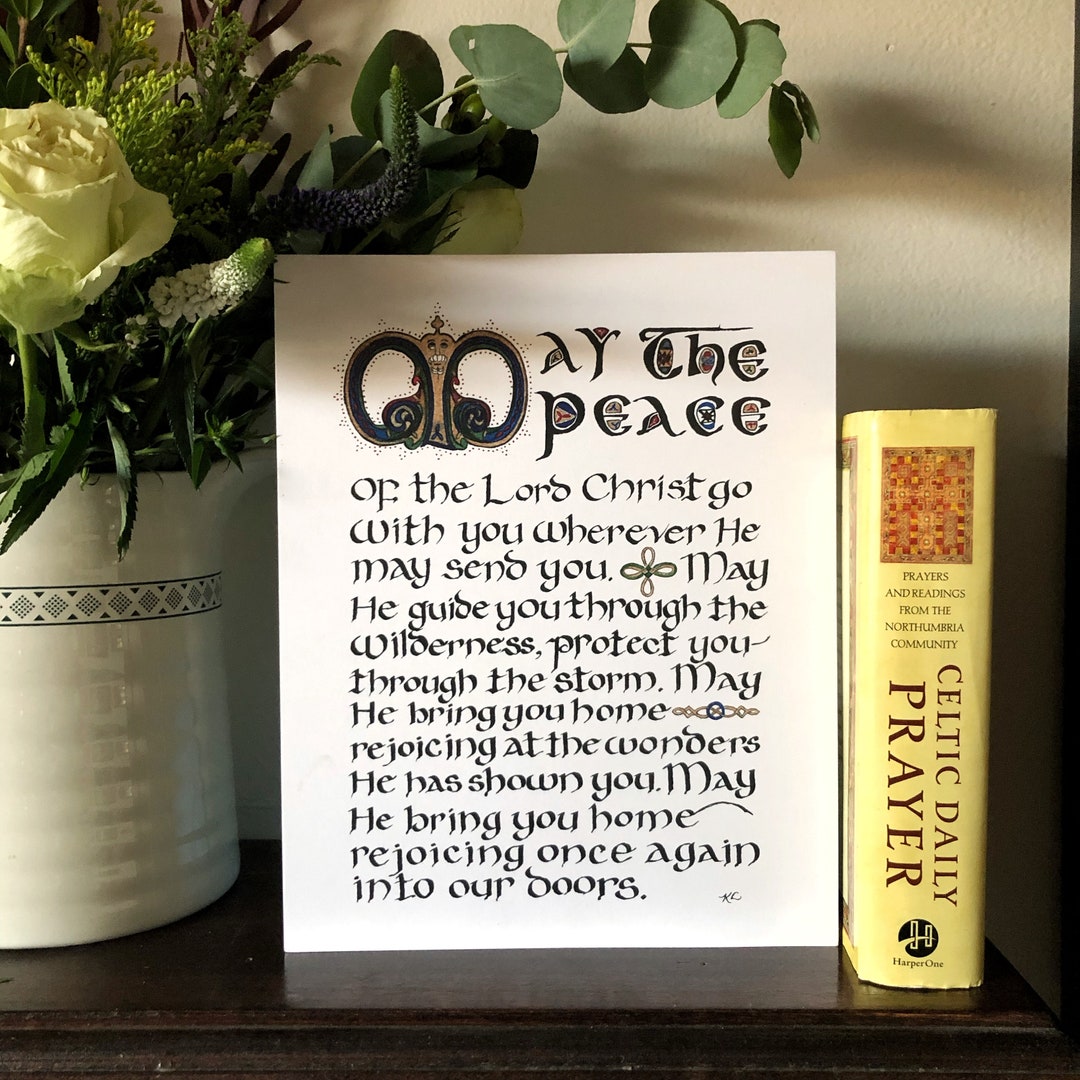 May the
peace
of the Lord Christ go
with you wherever He
may send you. May
He guide you through the
wilderness, protect you
through the storm. May
He bring you home
rejoicing at the wonders
He has shown you. May
He bring you home
rejoicing once again
into our doors.
KL
PRAYERS
AND READINGS
FROM THE
NORTHUMBRIA
COMMUNITY
CELTIC DAILY
PRAYER
HarperOne